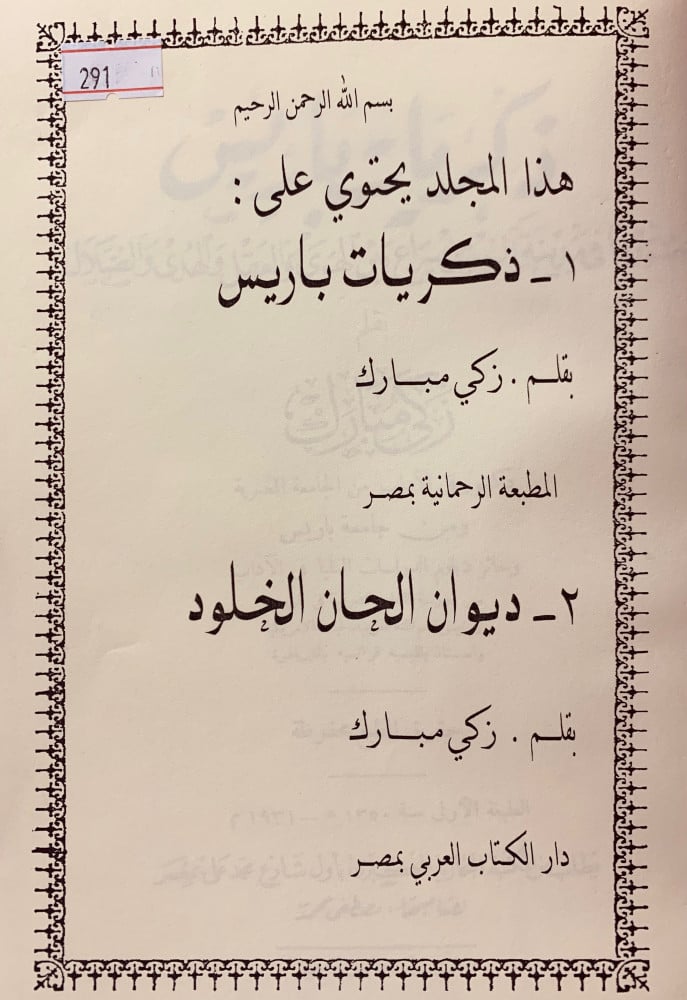 291
بسم الله الرحمن الرحيم
هذا المجلد يحتوي على :
١ ـ ذكريات باريس
بقلـم . زكي مبـارك
المطبعة الرحمانية بمصر
٢ ـ ديوان الحان الخلود
بقلـم . زكي مبـارك
دار الكتاب العربي بمصر